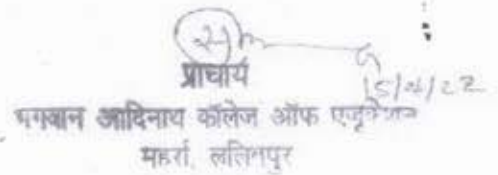 15/4/22
प्राचार्य
भगवान आदिनाथ कॉलेज ऑफ एजूकेशन
महर्रा, ललितपुर